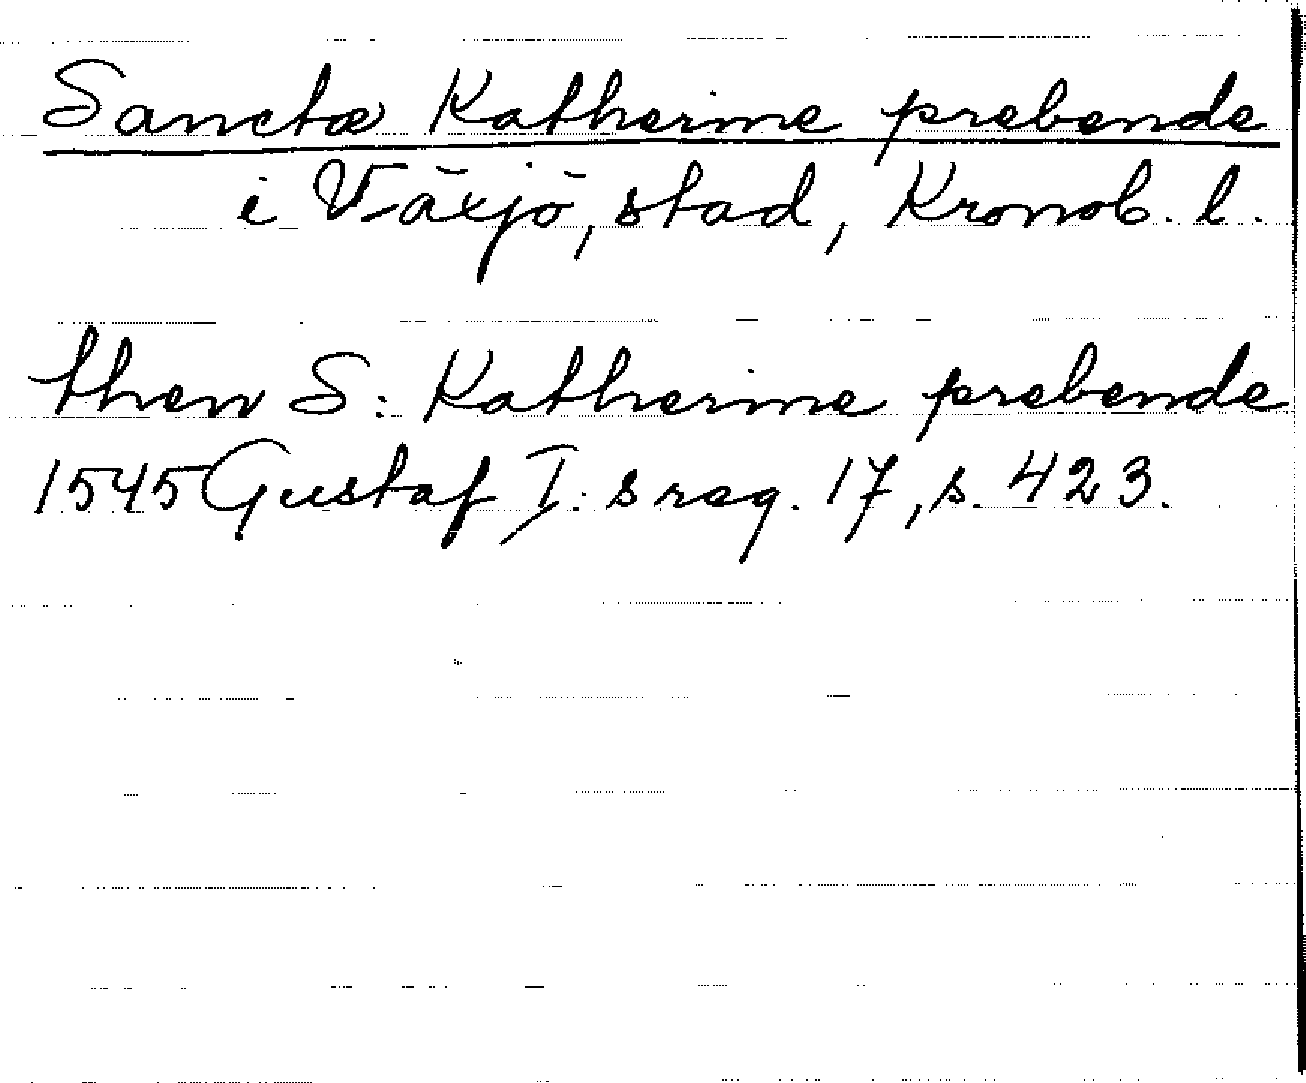 Sanctæ Katherine prebende
i Växjö, stad, Kronob. l.
then S: Katherine prebende
1545 Gustaf I:s reg. 17, s. 423.